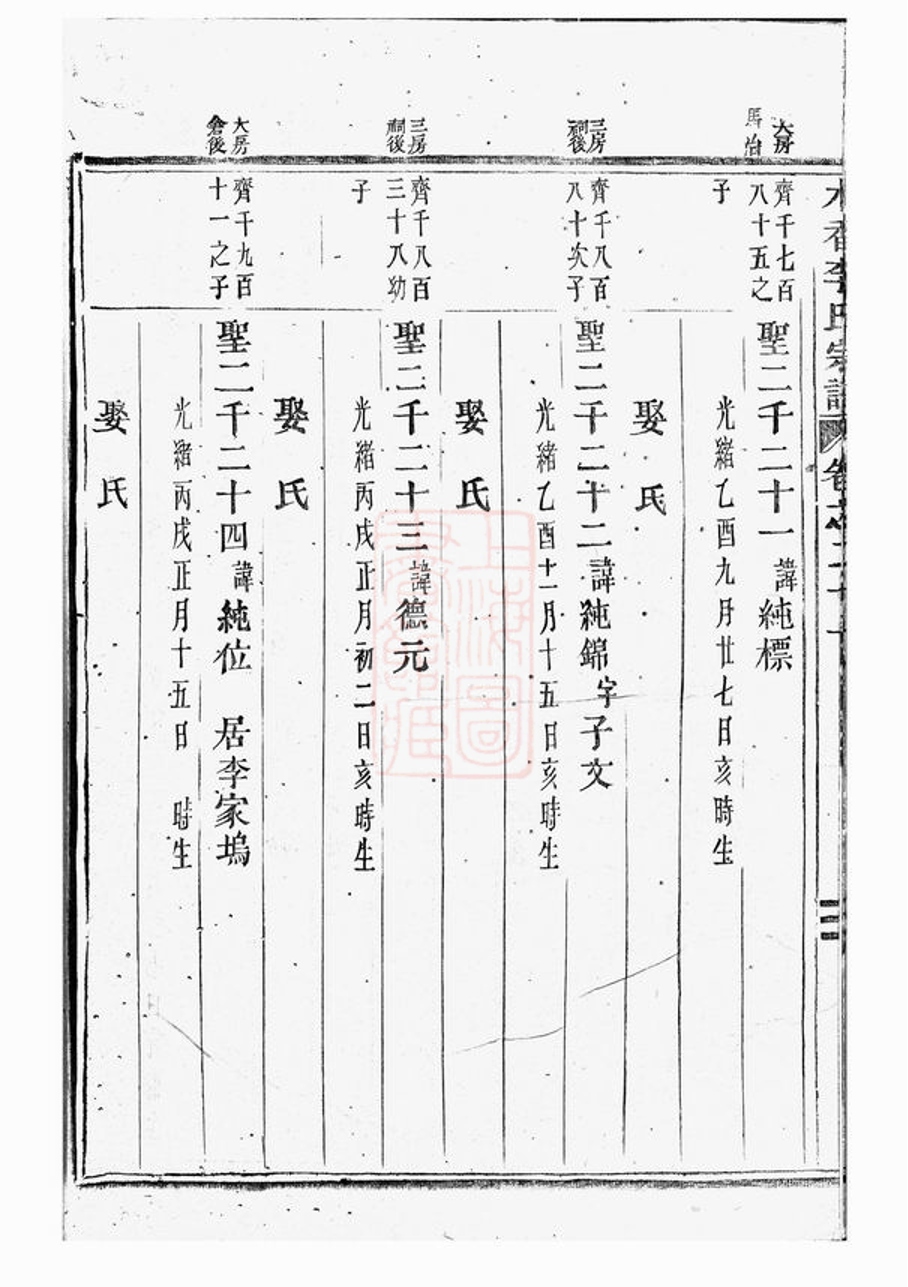 李氏宗譜
大房
馬冶
齊千七百
八十五之
子
聖二千二十一 諱純標
光緒乙酉九月廿七日亥時生
娶 氏
三房
祠後
齊千八百
八十次子
聖二千二十二 諱純錦 字子文
光緒乙酉十一月十五日亥時生
娶 氏
三房
祠後
齊千八百
三十八幼
子
聖二千二十三 諱德元
光緒丙戌正月初二日亥時生
娶 氏
大房
倉後
齊千九百
十一之子
聖二千二十四 諱純位 居李家塢
光緒丙戌正月十五日 時生
娶 氏
上海圖
書館藏